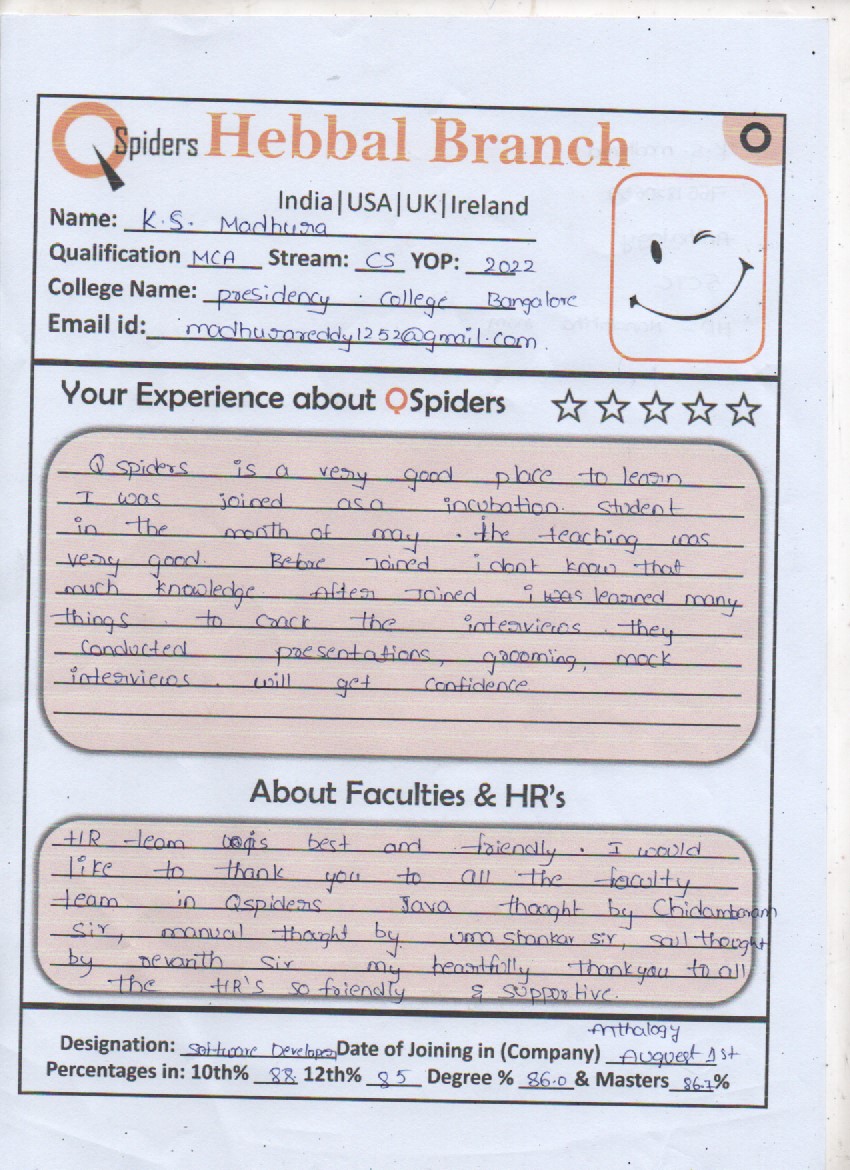 QSpiders Hebbal Branch
India|USA|UK|Ireland
Name: K.S. Madhura
Qualification MCA Stream: CS YOP: 2022
College Name: presidency . college Bangalore
Email id: madhurareddy1252@gmail.com.
Your Experience about QSpiders
Q spiders is a very good place to learn
I was joined as a incubation. student
in the month of may . the teaching was
very good. Before Joined i dont know that
much knowledge. After Joined i was learned many
things. to crack the interviews. they
conducted presentations, grooming, mock
interviews. will get confidence
About Faculties & HR's
HR team is best and friendly. I would
like to thank you to all the faculty
team in Qspiders Java thought by Chidambaram
Sir, manual thought by uma shankar sir, sql thought
by revanth Sir my heartfully thankyou to all
the HR'S so friendly & supportive.
Anthalogy
Designation: Software Developer Date of Joining in (Company) August 1st
Percentages in: 10th% 88 12th% 85 Degree % 86.0 & Masters 86.7%